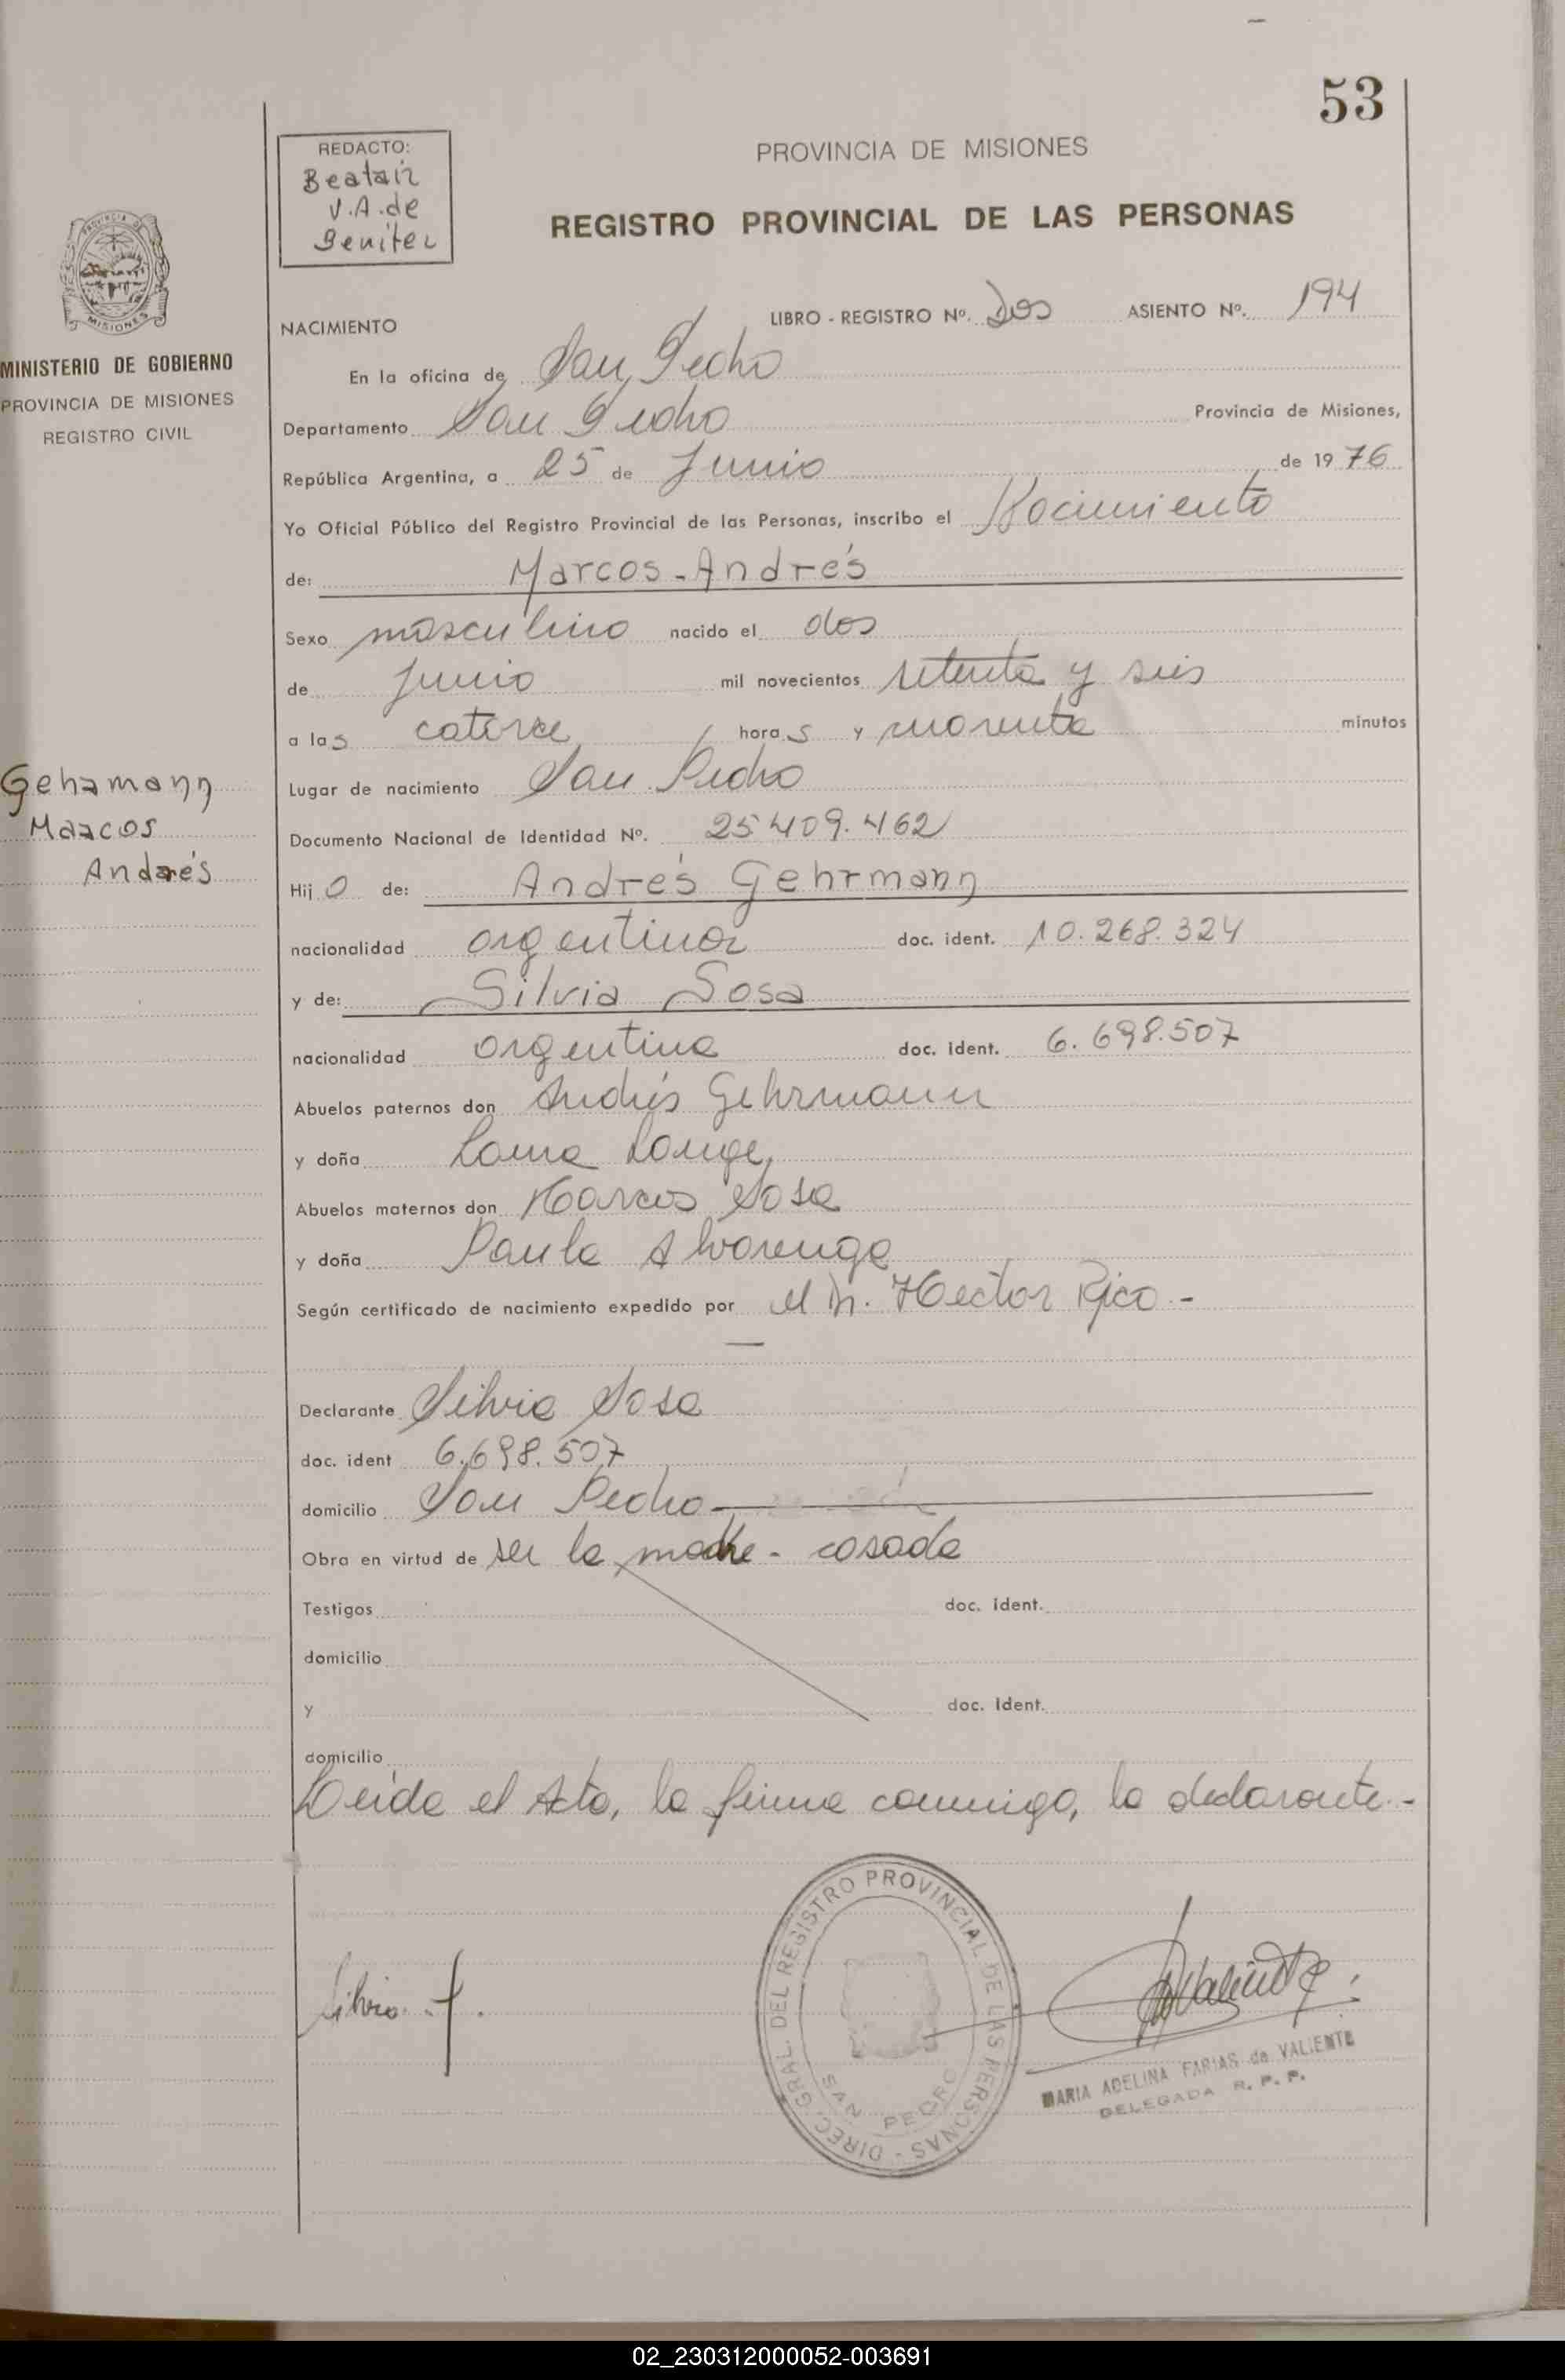 53
REDACTO:
Beatriz
V.A. de
Benitez
PROVINCIA DE MISIONES
REGISTRO PROVINCIAL DE LAS PERSONAS
MISIONES
MINISTERIO DE GOBIERNO
PROVINCIA DE MISIONES
REGISTRO CIVIL
NACIMIENTO
LIBRO - REGISTRO Nº. Dos ASIENTO Nº. 194
En la oficina de San Pedro
Departamento San Pedro Provincia de Misiones,
República Argentina, a 25 de Junio de 1976
Yo Oficial Público del Registro Provincial de las Personas, inscribo el Nacimiento
de: Marcos-Andrés
Sexo masculino nacido el dos
de junio mil novecientos setenta y seis
a las catorce horas y cuarenta minutos
Lugar de nacimiento San Pedro
Gehrmann
Marcos
Andrés
Documento Nacional de Identidad Nº. 25409.462
Hijo de: Andrés Gehrmann
nacionalidad argentina doc. ident. 10.268.324
y de: Silvia Sosa
nacionalidad argentina doc. ident. 6.698.507
Abuelos paternos don Andrés Gehrmann
y doña Lange
Abuelos maternos don Marcos Sosa
y doña Paula Alvarenga
Según certificado de nacimiento expedido por el Dr. Hector Rico -
Declarante Silvia Sosa
doc. ident 6.698.507
domicilio San Pedro
Obra en virtud de ser la madre - casada
Testigos doc. ident.
domicilio
y doc. ident.
domicilio
Leída el Acta, la firma conmigo, la declarante.-
Silvia
DIREC. GRAL. DEL REGISTRO PROVINCIAL DE LAS PERSONAS -
SAN PEDRO
Valiente
MARIA ADELINA FARIAS de VALIENTE
DELEGADA R. P. P.
02_230312000052-003691